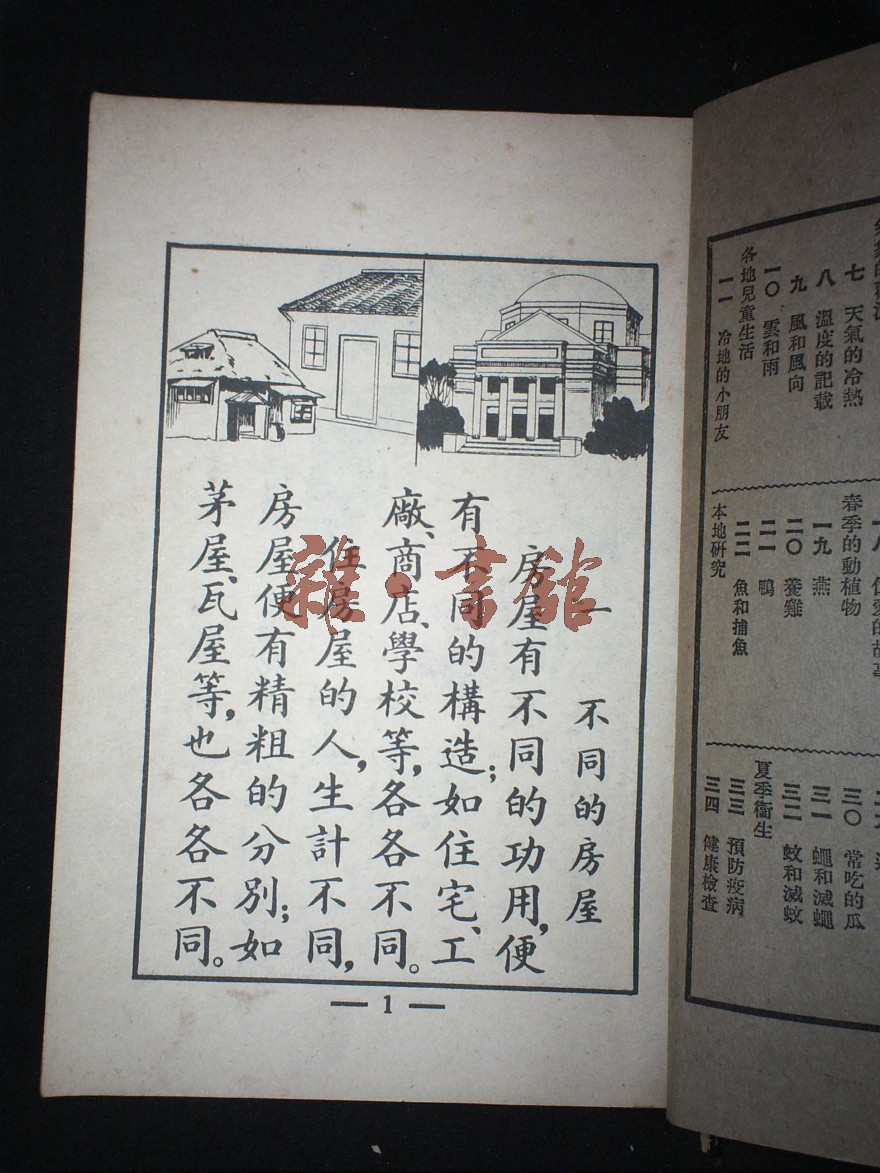 一 不同的房屋
房屋有不同的功用,便
有不同的構造;如住宅、工
廠、商店、學校等,各各不同。
住房屋的人,生計不同,
房屋便有精粗的分別;如
茅屋、瓦屋等,也各各不同。
1
七 天氣的冷熱
八 溫度的記載
九 風和風向
一〇 雲和雨
各地兒童生活
一一 冷地的小朋友
春季的動植物
一九 燕
二〇 養雞
二一 鴨
二二 魚和捕魚
本地研究
三〇 常吃的瓜
三一 蠅和滅蠅
三二 蚊和滅蚊
夏季衞生
三三 預防疫病
三四 健康檢查
雜·書館